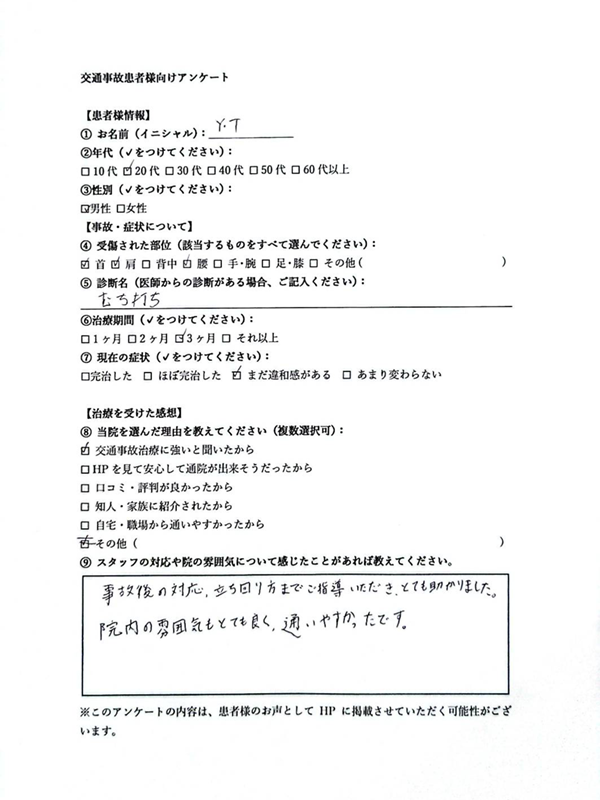 交通事故患者様向けアンケート
【患者様情報】
① お名前（イニシャル）：Y.T
②年代（✓をつけてください）：
□10代 ☑20代 □30代 □40代 □50代 □60代以上
③性別（✓をつけてください）：
☑男性 □女性
【事故・症状について】
④ 受傷された部位（該当するものをすべて選んでください）：
☑ 首 ☑ 肩 □ 背中 ☑ 腰 □ 手・腕 □ 足・膝 □ その他（ ）
⑤ 診断名（医師からの診断がある場合、ご記入ください）：
むち打ち
⑥治療期間（✓をつけてください）：
□1ヶ月 □2ヶ月 ☑3ヶ月 □ それ以上
⑦ 現在の症状（✓をつけてください）：
□完治した □ ほぼ完治した ☑ まだ違和感がある □ あまり変わらない
【治療を受けた感想】
⑧ 当院を選んだ理由を教えてください（複数選択可）：
☑ 交通事故治療に強いと聞いたから
□HPを見て安心して通院が出来そうだったから
□ 口コミ・評判が良かったから
□ 知人・家族に紹介されたから
□ 自宅・職場から通いやすかったから
☑その他（ ）
⑨ スタッフの対応や院の雰囲気について感じたことがあれば教えてください。
事故後の対応、立ち回り方までご指導いただき、とても助かりました。
院内の雰囲気もとても良く、通いやすかったです。
※このアンケートの内容は、患者様のお声として HP に掲載させていただく可能性がござ
います。